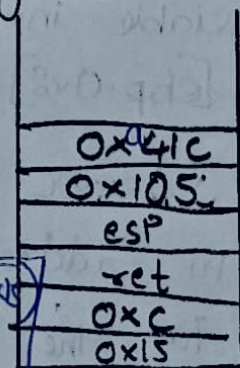 0x41c
0x105
esp
ret
0xc
0x15